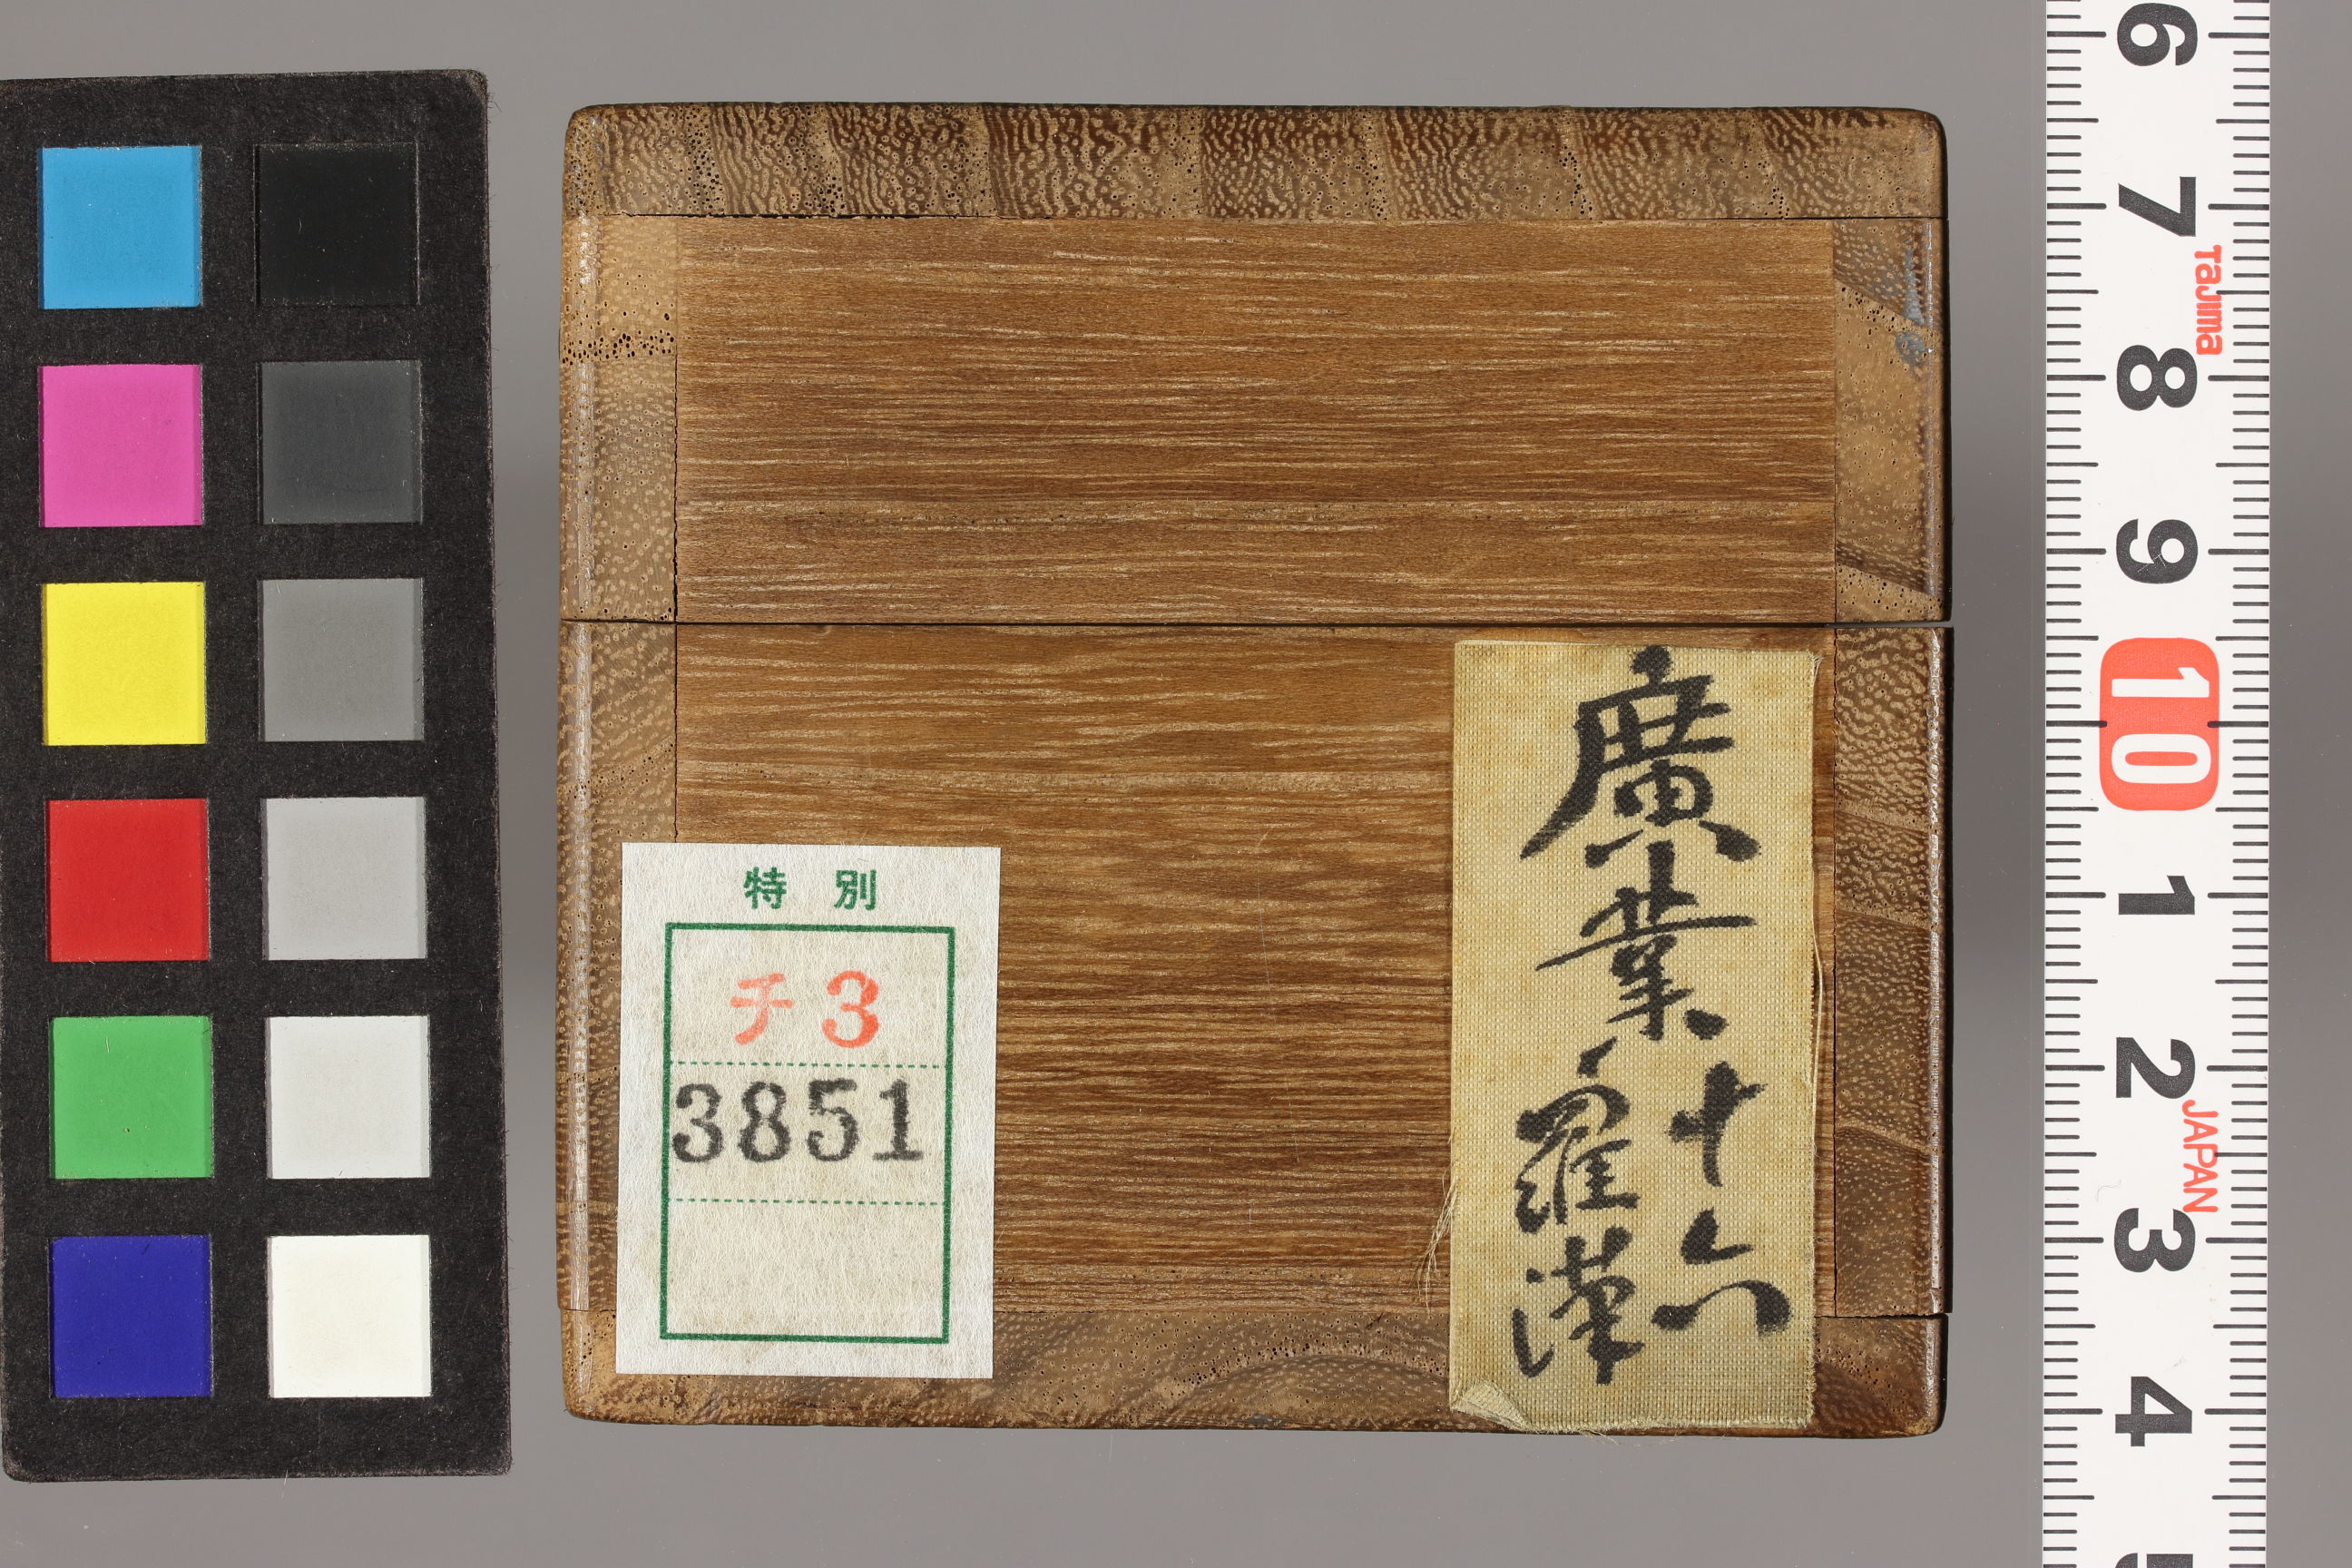 特別
チ3
3851
廣業十六
羅漢
6
7
8
9
10
1
2
3
4
Tajima
JAPAN